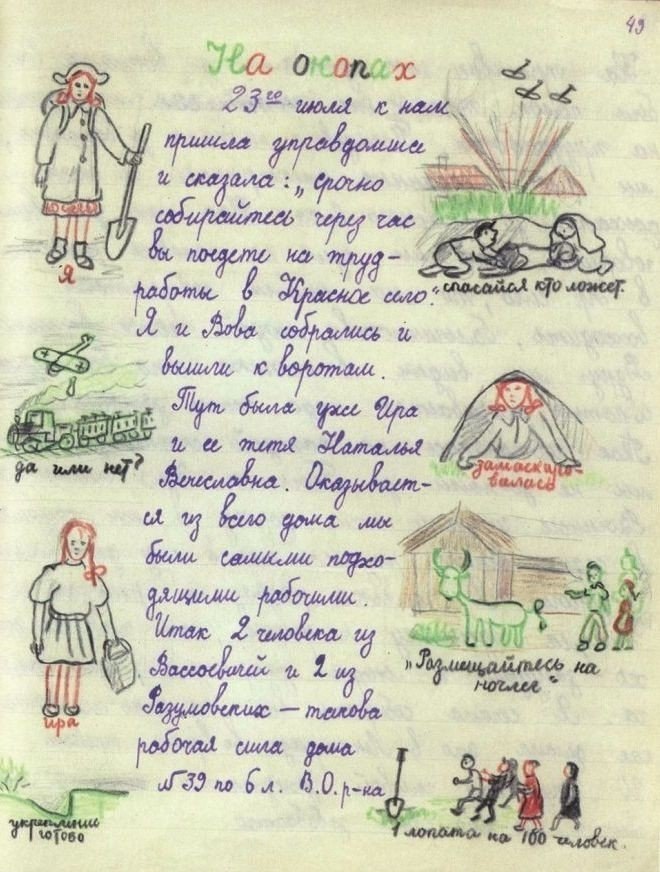 49
На окопах
23го июля к нам
пришла управдомша
и сказала: „срочно
собирайтесь через час
вы поедете на труд-
работы в Красное село."
Я и Вова собрались и
вышли к воротам.
Тут была уже Ира
и ее тетя Наталья
Вечеславна. Оказывает-
ся из всего дома мы
были самыми подхо-
дящими рабочими.
Итак 2 человека из
Вассоевичей и 2 из
Разумовских — такова
рабочая сила дома
№ 39 по 6 л. В.О. р-на
я
да или нет?
Ира
укрепление
готово
спасайся кто может.
замаскиро-
валась
„Размещайтесь на
ночлег"
1 лопата на 100 человек.